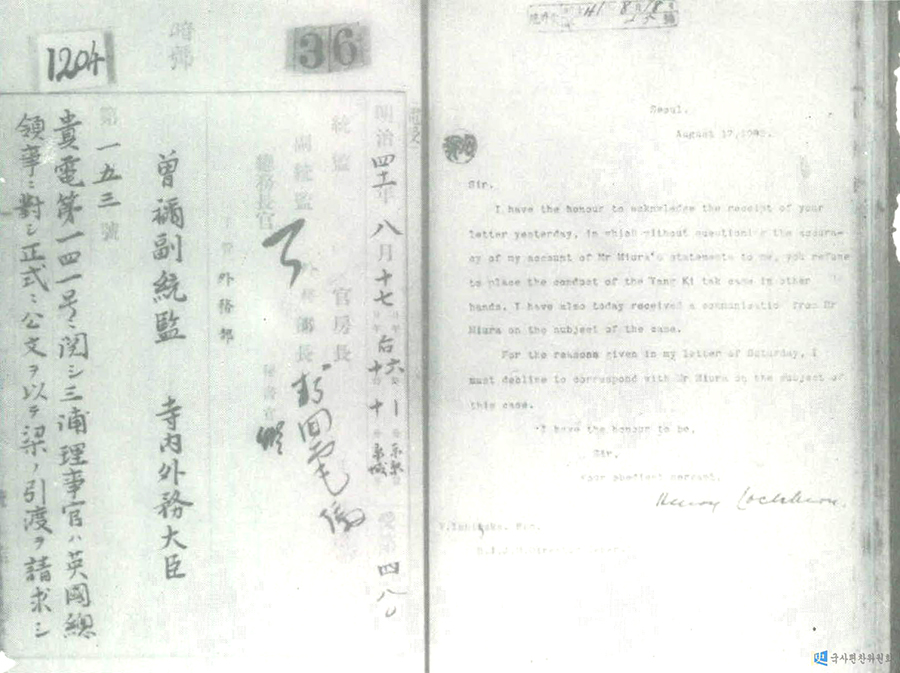 1204
暗號
36
明治四十一年八月十七日
統監
官房長
副統監
外務部長
總務長官
主管外務部
曾禰副統監 寺内外務大臣
第一五三號
貴電第一四一号ニ関シ三浦理事官ハ英国總
領事ニ對シ正式ニ公文ヲ以テ梁ノ引渡ヲ請求シ
Seoul.
August 17, 1908.
Sir.
I have the honour to acknowledge the receipt of your
letter yesterday, in which without questioning the accura-
cy of my account of Mr Miura's statements to me, you refuse
to place the conduct of the Yang Ki tak case in other
hands. I have also today received a communicatio from Mr
Miura on the subject of the case.
For the reasons given in my letter of Saturday, I
must decline to correspond with Mr Miura on the subject of
this case.
I have the honour to be,
Sir,
your obedient servant,
Henry Cockburn.
국사편찬위원회